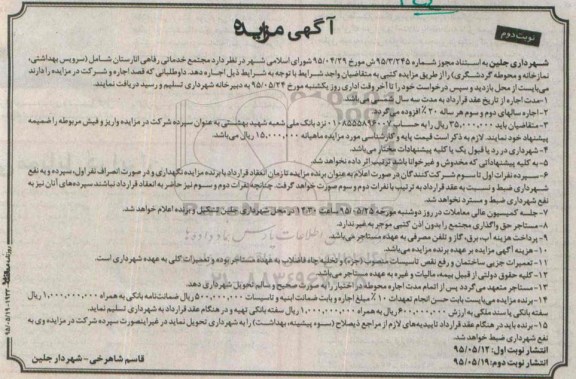 آگهی مزایده
نوبت دوم
شهرداری جلین به استناد مجوز شماره ۹۵/۳/۲۴۵ ش مورخ ۹۵/۰۴/۲۹ شورای اسلامی شهر در نظر دارد مجتمع خدماتی رفاهی انارستان شامل (سرویس بهداشتی،
نمازخانه و محوطه گردشگری) را از طریق مزایده کتبی به متقاضیان واجد شرایط با توجه به شرایط ذیل اجاره دهد. داوطلبانی که قصد اجاره و شرکت در مزایده را دارند
می‌بایست از محل بازدید و سپس درخواست خود را تا آخر وقت اداری روز یکشنبه مورخ ۹۵/۰۵/۲۴ به دبیرخانه شهرداری تسلیم و رسید دریافت نمایند.
۱-مدت اجاره از تاریخ عقد قرارداد به مدت سه سال شمسی می‌باشد.
۲-اجاره سالهای دوم و سوم هر ساله ۲۰٪ افزوده می‌گردد.
۳-متقاضیان باید ۳۵،۰۰۰،۰۰۰ ریال را به حساب ۰۱۰۸۵۵۵۸۹۶۰۰۷ نزد بانک ملی شعبه شهید بهشتی به عنوان سپرده شرکت در مزایده واریز و فیش مربوطه را ضمیمه
پیشنهاد خود نمایند. لازم به ذکر است قیمت پایه و کارشناسی مورد مزایده ماهیانه ۱۵،۰۰۰،۰۰۰ ریال می‌باشد.
۴-شهرداری در رد یا قبول یک یا کلیه پیشنهادات مختار می‌باشد.
۵-به کلیه پیشنهاداتی که مخدوش و غیرخوانا باشد ترتیب اثر داده نخواهد شد.
۶-سپرده نفرات اول تا سوم شرکت‌کنندگان در صورت اعلام به عنوان برنده مزایده تا زمان انعقاد قرارداد با برنده مزایده نگهداری و در صورت انصراف نفر اول، سپرده وی به نفع
شهرداری ضبط و نسبت به عقد قرارداد به ترتیب با نفرات دوم و سوم صورت خواهد گرفت. چنانچه نفرات دوم و سوم نیز حاضر به انعقاد قرارداد نباشند سپرده‌های آنان نیز به
نفع شهرداری ضبط و مسترد نخواهد شد.
۷-جلسه کمیسیون عالی معاملات در روز دوشنبه مورخه ۹۵/۰۵/۲۵ ساعت ۱۲:۳۰ در محل شهرداری جلین تشکیل و برنده اعلام خواهد شد.
۸-مستاجر حق واگذاری مجتمع را بدون اذن کتبی موجر به غیر ندارد.
۹-پرداخت هزینه آب، برق، گاز و تلفن مصرفی به عهده مستاجر می‌باشد.
۱۰-هزینه آگهی مزایده بر عهده برنده مزایده می‌باشد.
۱۱-تعمیرات جزیی ساختمان و رفع نقص تاسیسات منصوب (جزء) و تخلیه چاه فاضلاب به عهده مستاجر بوده و تعمیرات کلی به عهده شهرداری است.
۱۲-کلیه حقوق دولتی از قبیل بیمه، مالیات و غیره به عهده مستاجر می‌باشد.
۱۳-مستاجر متعهد می‌گردد پس از اتمام مدت اجاره محوطه در اختیار را به صورت صحیح و سالم تحویل شهرداری دهد.
۱۴-برنده مزایده می‌بایست بابت حسن انجام تعهدات ۱۰٪ مبلغ اجاره و بابت ضمانت ابنیه و تاسیسات ۵۰۰،۰۰۰،۰۰۰ ریال ضمانت‌نامه بانکی به همراه ۱،۰۰۰،۰۰۰،۰۰۰ ریال
سفته بانکی یا سند ملکی به ارزش ۶۰۰،۰۰۰،۰۰۰ ریال به همراه ۱،۰۰۰،۰۰۰،۰۰۰ ریال سفته بانکی تهیه و در هنگام عقد قرارداد به شهرداری تسلیم نماید.
۱۵-برنده باید در هنگام عقد قرارداد تاییدیه‌های لازم از مراجع ذیصلاح (سوء پیشینه، بهداشت) را به شهرداری تحویل نماید در غیر اینصورت سپرده شرکت در مزایده وی به
نفع شهرداری ضبط خواهد شد.
انتشار نوبت اول: ۹۵/۰۵/۱۲
انتشار نوبت دوم: ۹۵/۰۵/۱۹
قاسم شاهرخی - شهردار جلین